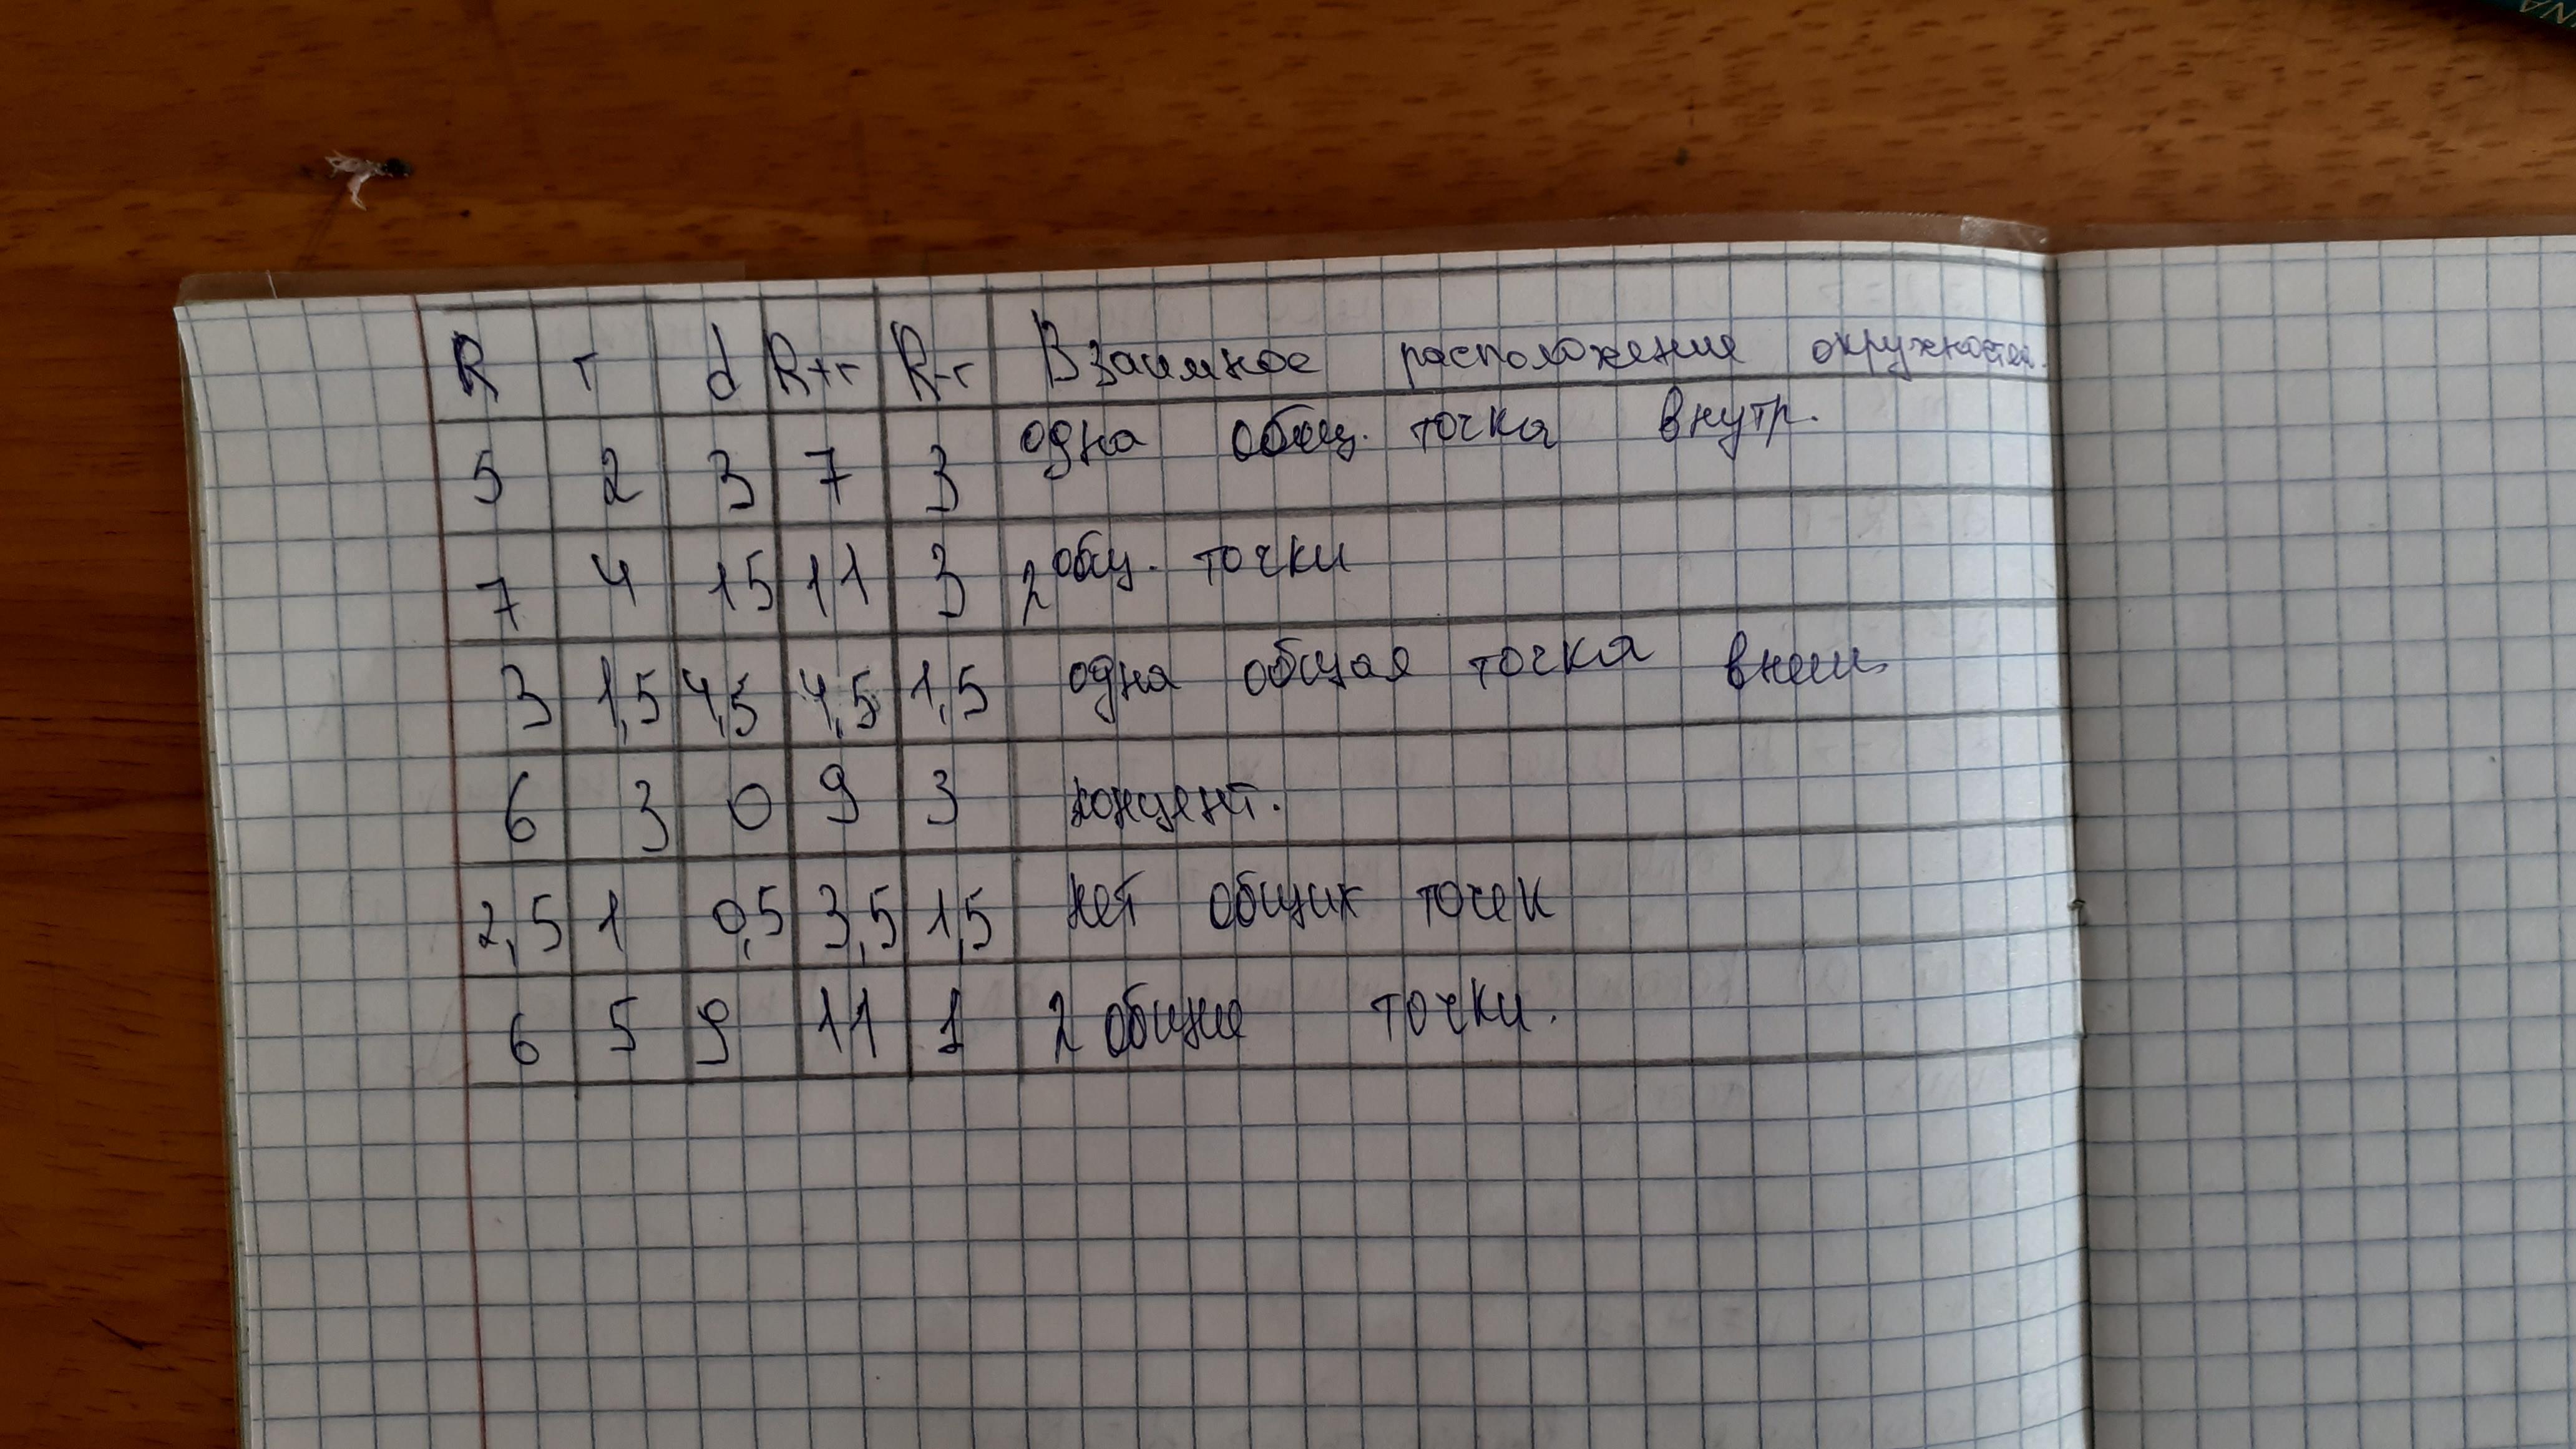 R r d R+r R-r Взаимное расположение окружностей.
5 2 3 7 3 одна общ. точка внутр.
7 4 15 11 3 2 общ. точки
3 1,5 4,5 4,5 1,5 одна общая точка внеш.
6 3 0 9 3 концент.
2,5 1 0,5 3,5 1,5 нет общих точек
6 5 9 11 1 2 общие точки.